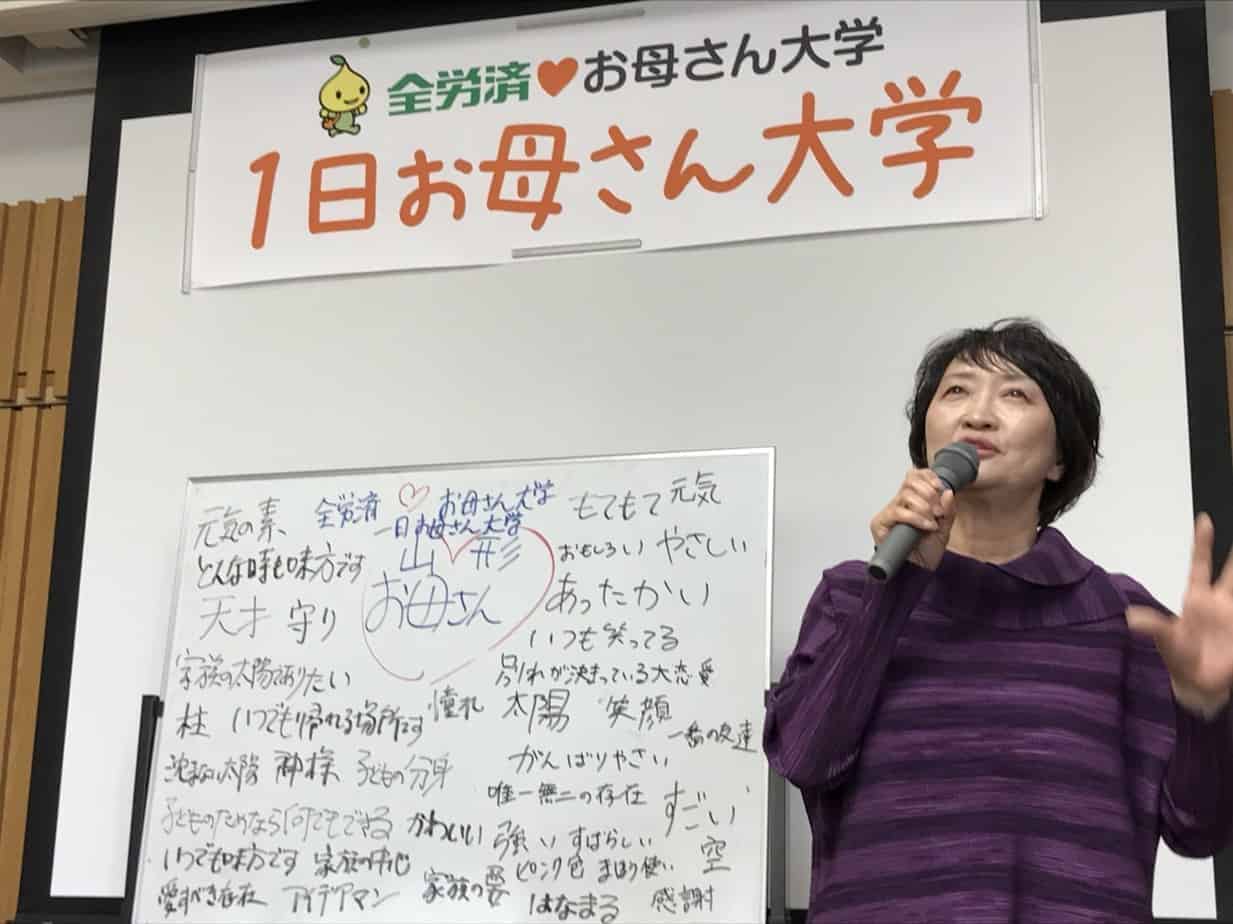 全労済♥お母さん大学
1日お母さん大学
元気の素、
全労済 ♡ お母さん大学
一日お母さん大学
山♡形
お母さん
もてもて 元気
とんな時も味方です
おもしろい やさしい
天才 守り
あったかい
いつも笑ってる
家族の太陽でありたい
別れが決まっている大恋愛
柱 いつでも帰れる場所です
憧れ
太陽 笑顔
一番の友達
沈まぬ太陽 神様 子どもの分身
がんばりやさい
唯一無二の存在
すごい
子どものためなら何でもできる かわいい
強い すばらしい
空
いつでも味方です 家族の中心
ピンク色 まほう使い
愛すべき存在 アイデアマン
家族の要
はなまる 感謝